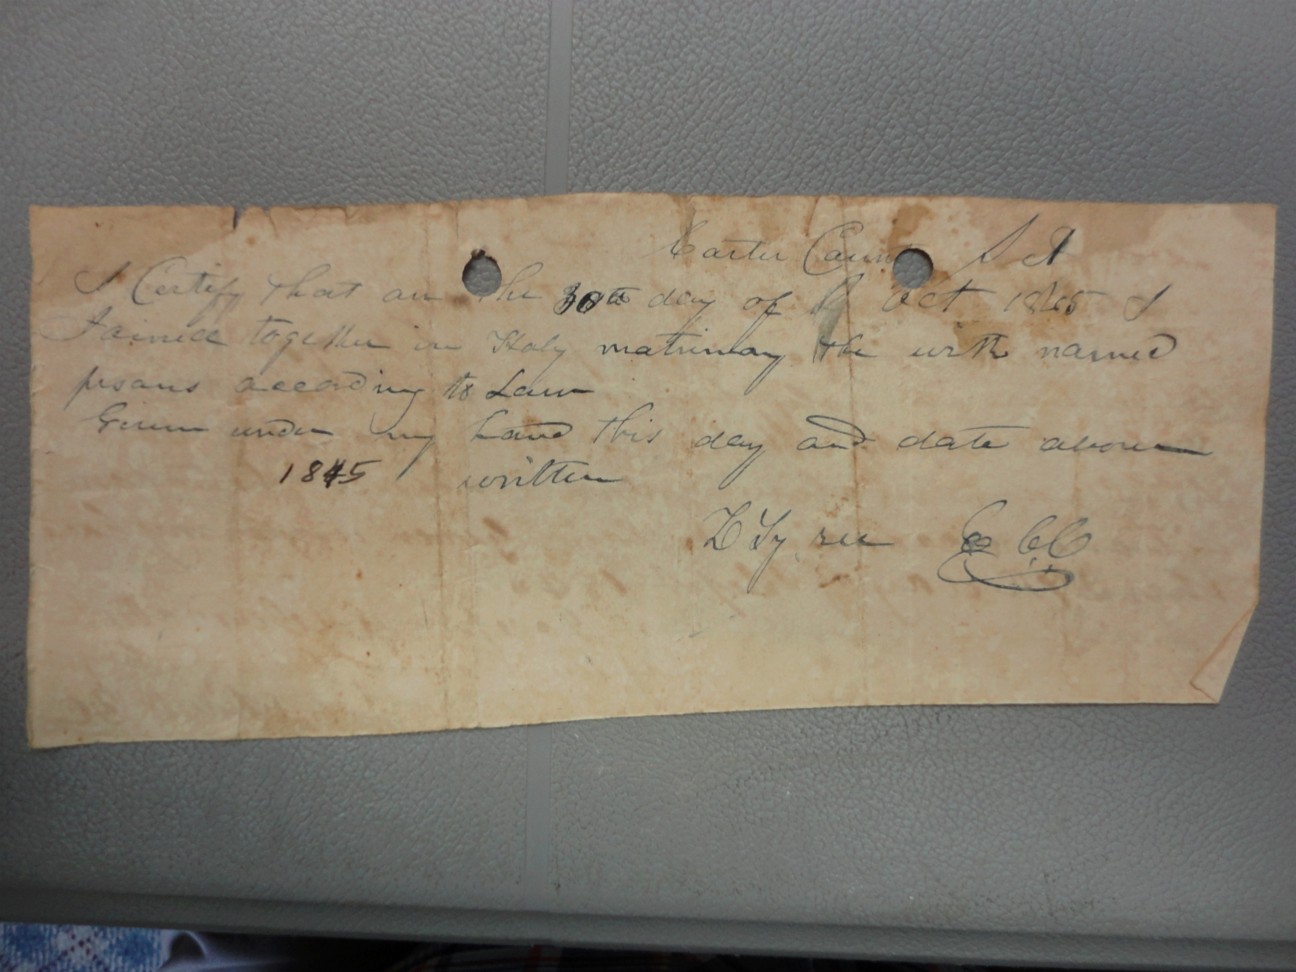 Carter Coun Sct
I Certify that on the 30th day of Oct 1845 I
Joined together in Holy matrimony the with named
psons according to Law
Given under my hand this day and date above
1845 written